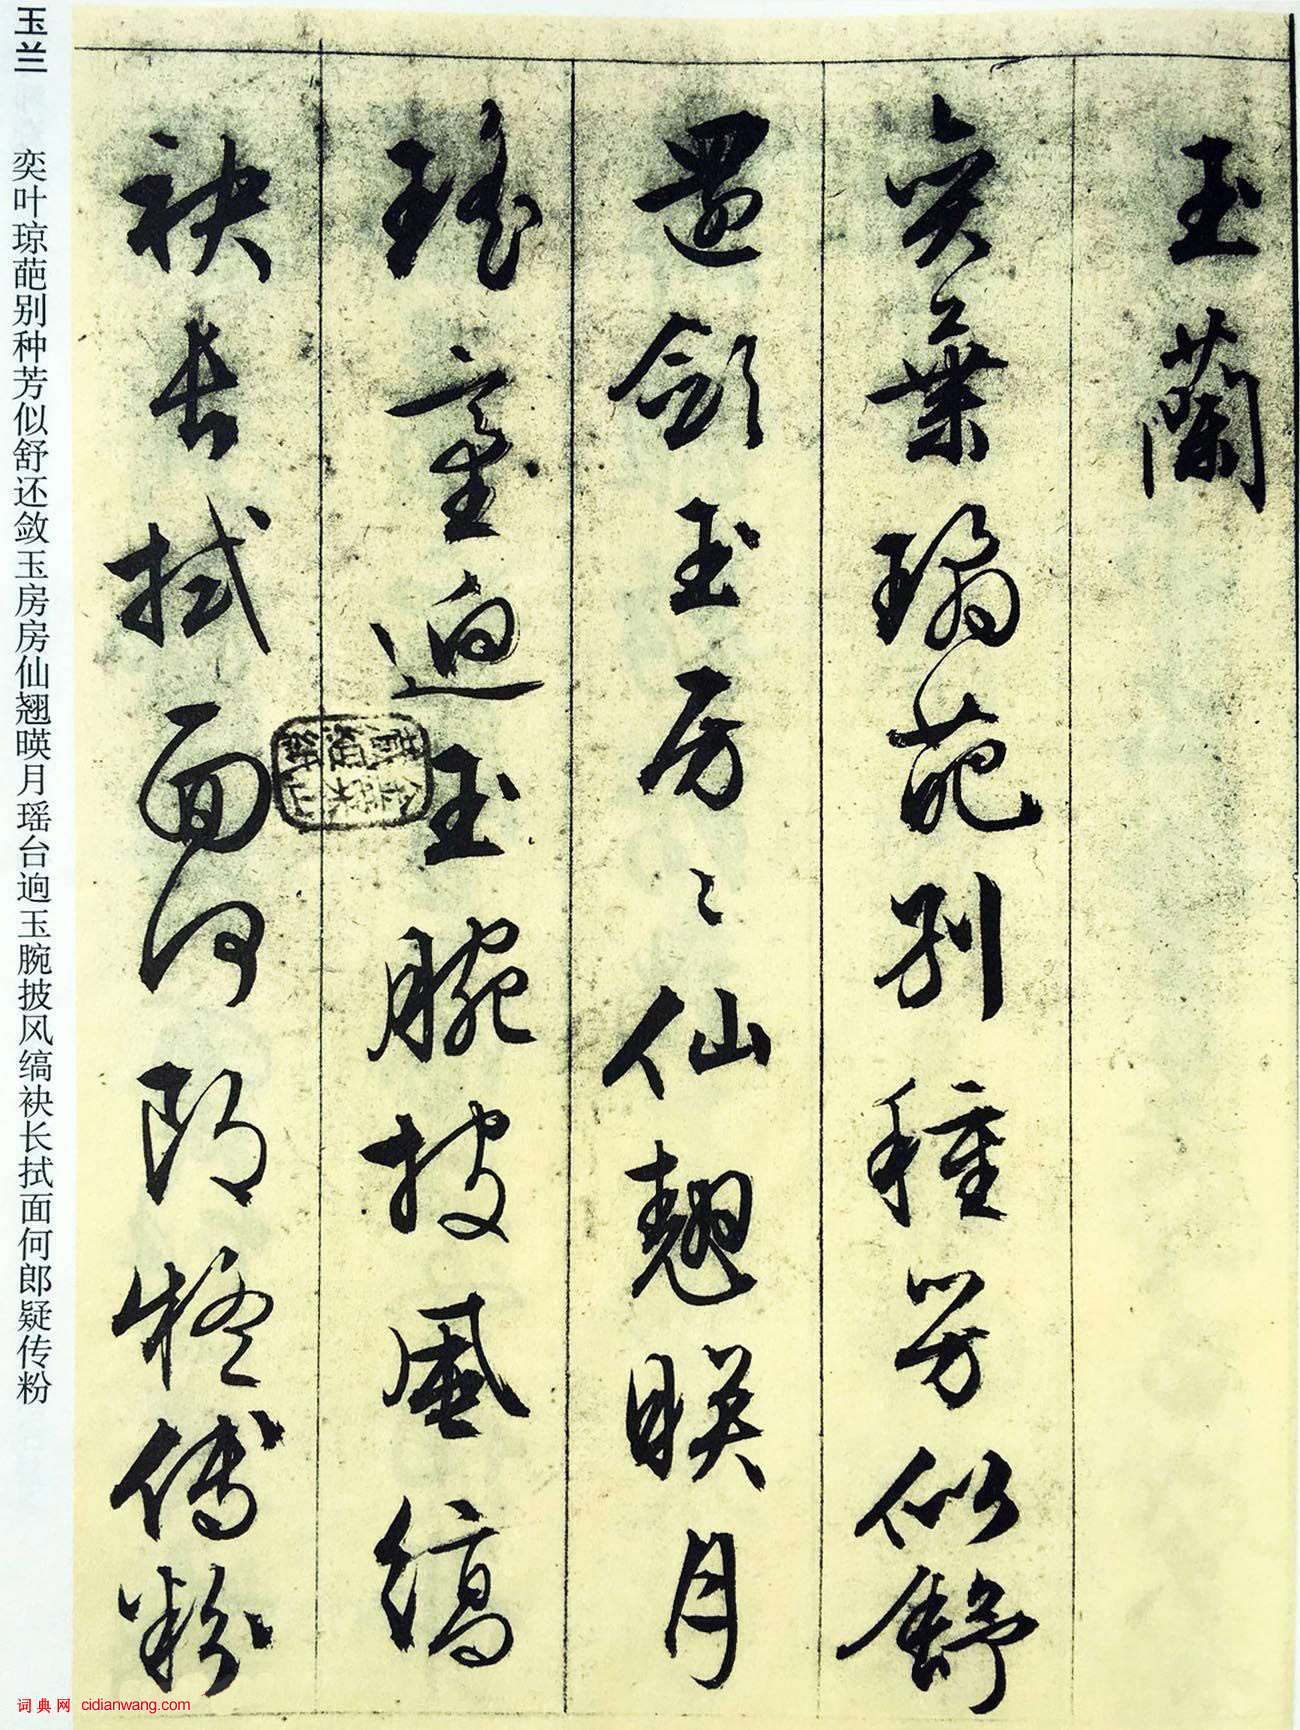 玉蘭
奕葉瓊葩別種芳似舒
還斂玉房〻仙翹暎月
瑤臺逈玉腕披風縞
袂長拭面何郎疑傅粉
玉兰 奕叶琼葩别种芳似舒还敛玉房房仙翘暎月瑶台逈玉腕披风缟袂长拭面何郎疑传粉
词典网 cidianwang.com